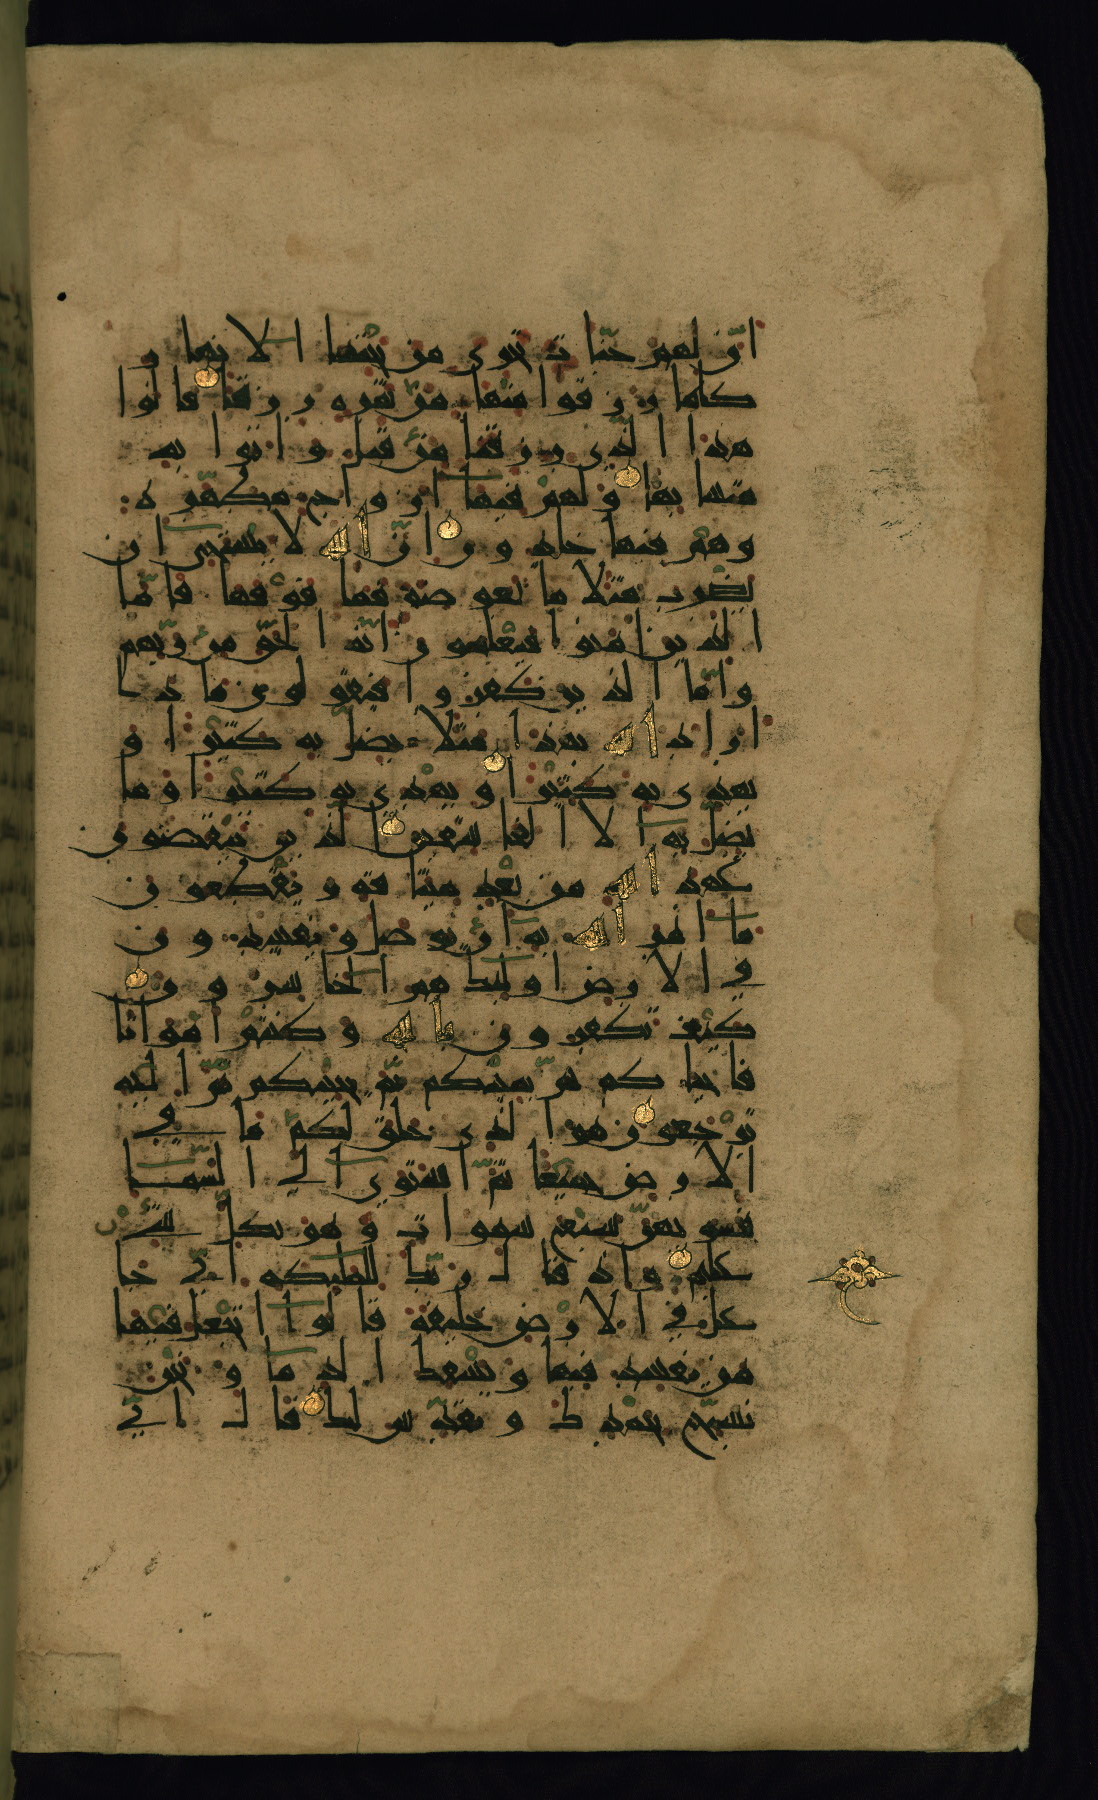 ان لهم جنات تجرى من تحتها الانهار
كلما رزقوا منها من ثمره رزقا قالوا
هذا الذى رزقنا من قبل واتوا به
متشابها ولهم فيها ازواج مطهره
وهم فيها خلدون ان الله لا يستحى ان
يضرب مثلا ما بعوضة فما فوقها فاما
الذين امنوا فيعلمون انه الحق من ربهم
واما الذين كفروا فيقولون ماذا
اراد الله بهذا مثلا يضل به كثيرا و
يهدى به كثيرا ويهدى به كثيرا وما
يضل به الا الفاسقين الذين ينقضون
عهد الله من بعد ميثاقه ويقطعون
ما امر الله به ان يوصل ويفسدون
في الارض اوليك هم الخاسرون
كيف تكفرون بالله وكنتم امواتا
فاحياكم ثم يميتكم ثم يحييكم ثم اليه
ترجعون هو الذى خلق لكم ما في
الارض جميعا ثم استوى الى السما
فسويهن سبع سموات وهو بكل شى
عليم واذ قال ربك للمليكه انى جا
عل في الارض خليفة قالوا اتجعل فيها
من يفسد فيها ويسفك الدما ونحن
نسبح بحمدك ونقدس لك قال انى